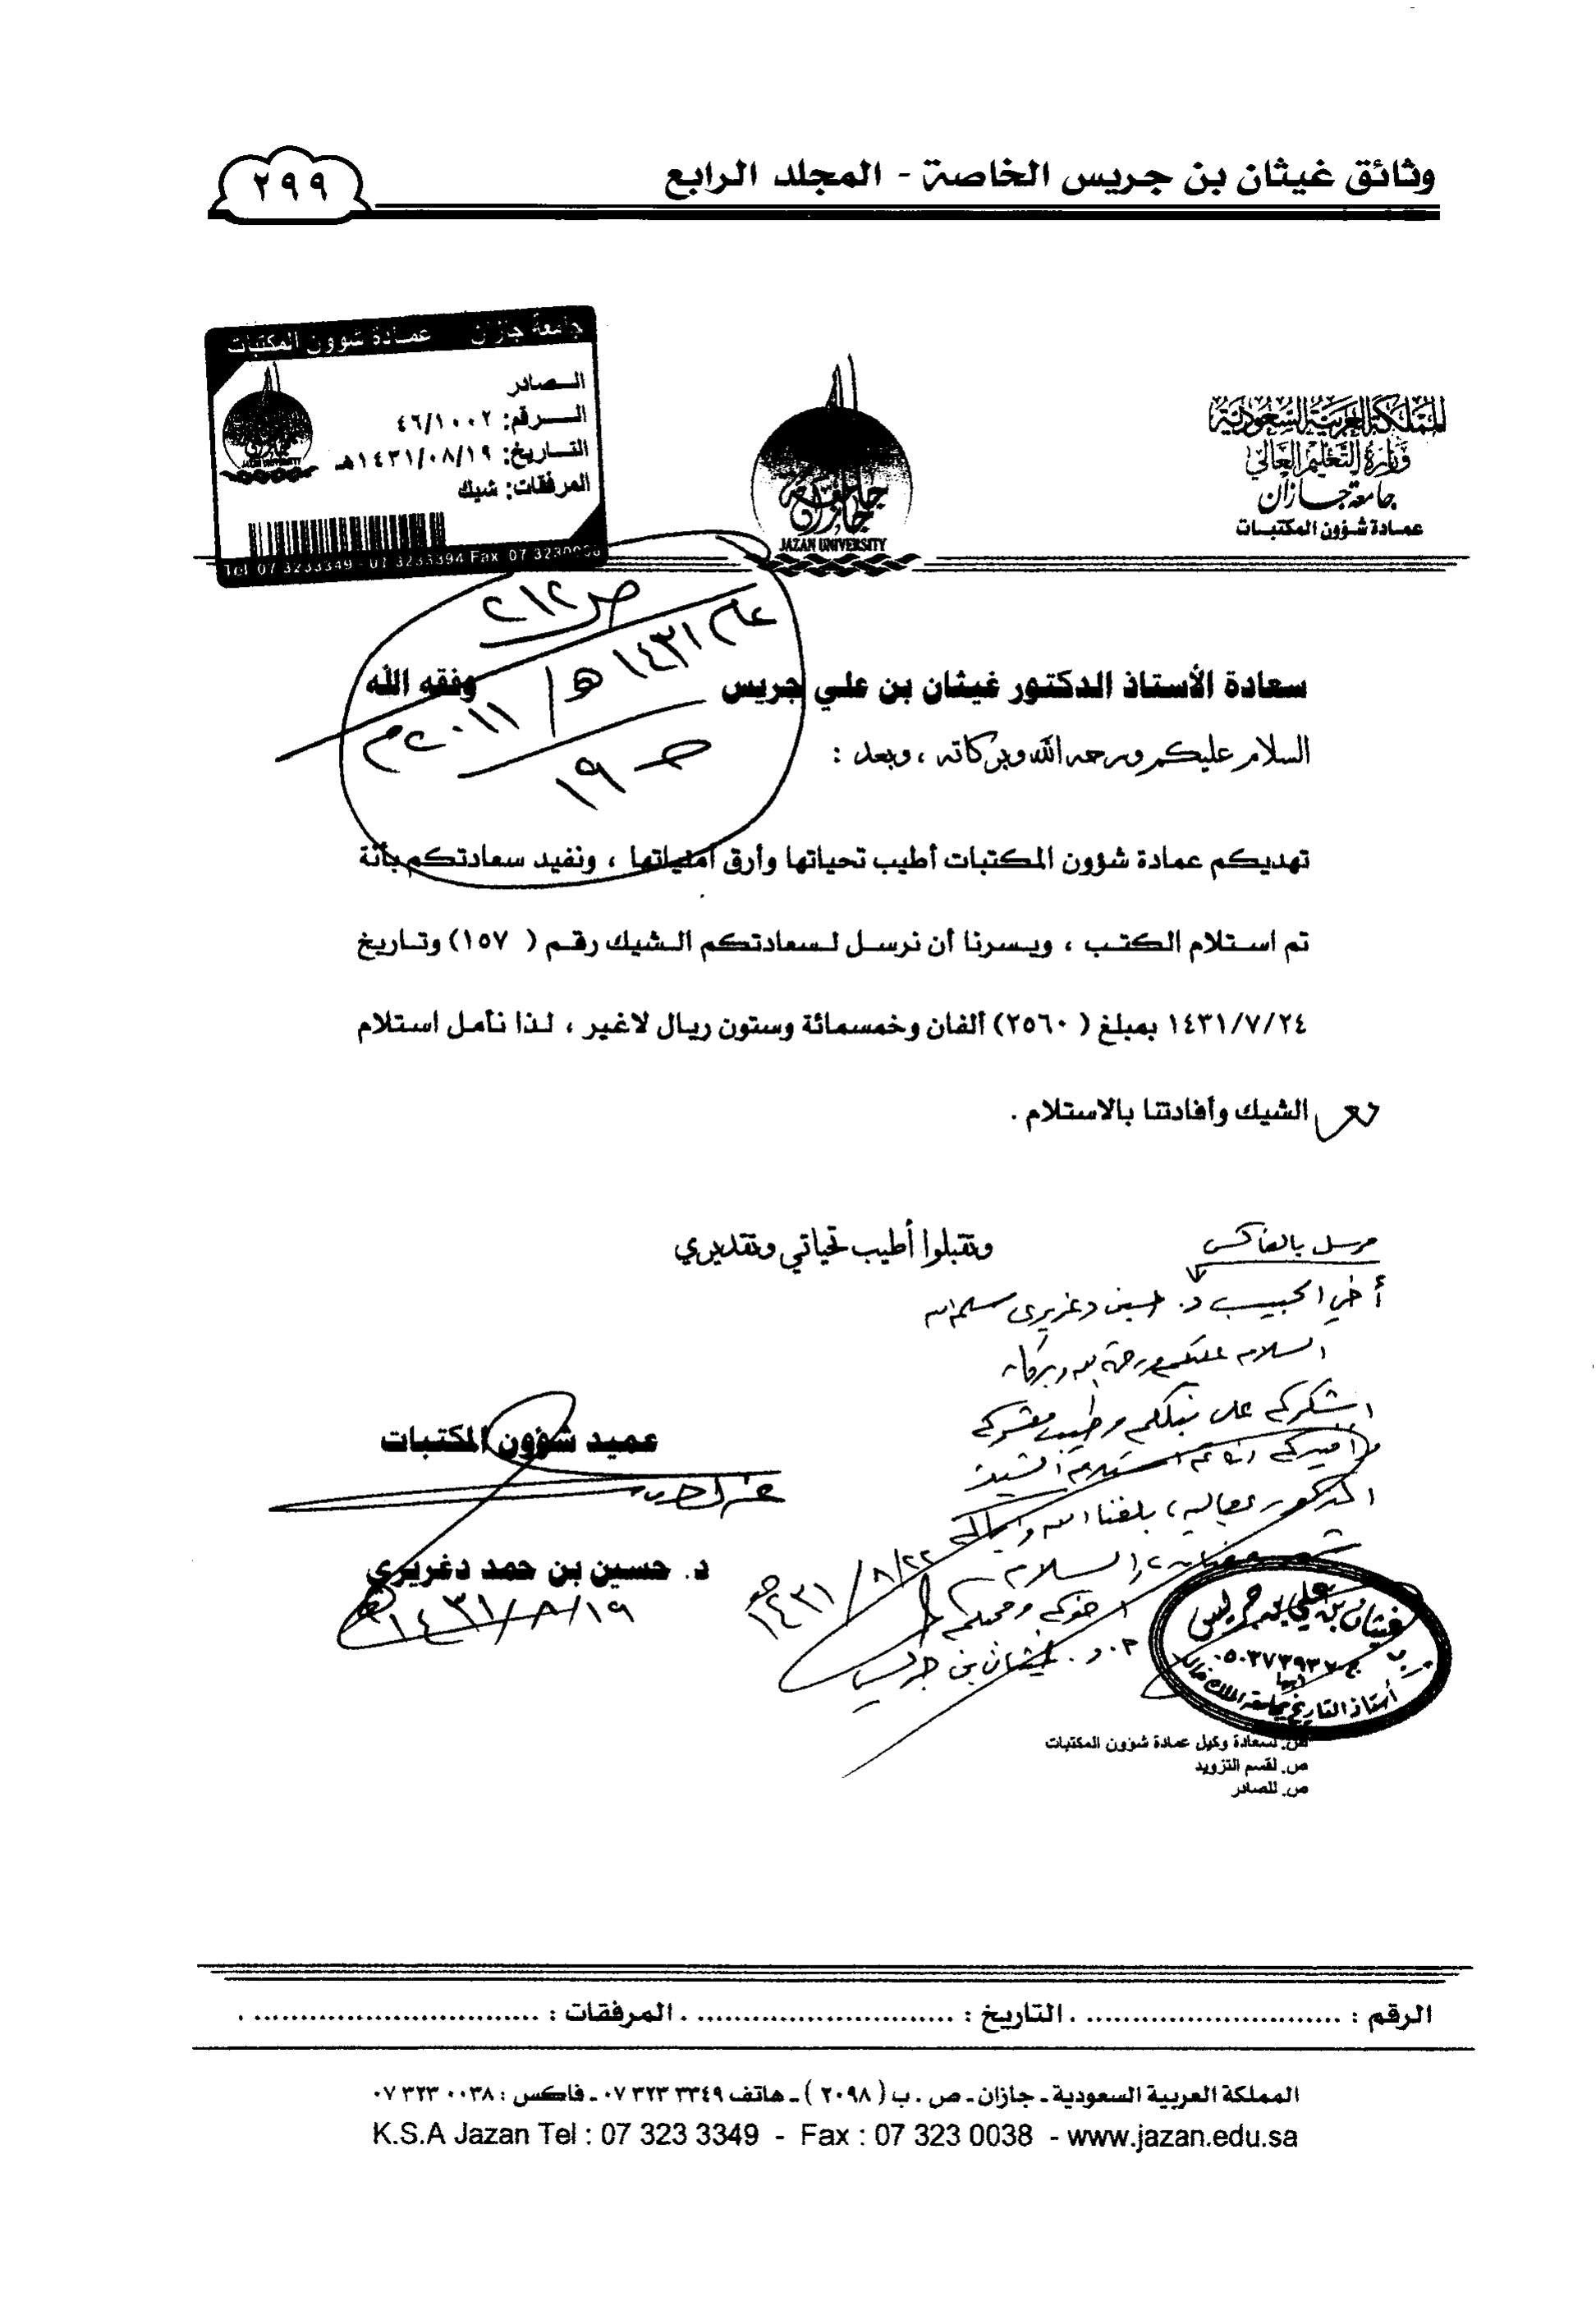 وثائق غيثان بن جريس الخاصة - المجلد الرابع
٢٩٩
المملكة العربية السعودية
وزارة التعليم العالي
جامعة جازان
عمادة شؤون المكتبات
جامعة جازان
JAZAN UNIVERSITY
جامعة جازان عمادة شؤون المكتبات
الصادر
الرقم: ٤٦/١٠٠٢
التاريخ: ١٤٣١/٠٨/١٩هـ
المرفقات: شيك
Tel 07 3233349 - 07 3233394 Fax 07 3230038
ص ٢١٢
عام ١٤٣١هـ / ٢٠١١م
ص ١٩
سعادة الأستاذ الدكتور غيثان بن علي جريس وفقه الله
السلام عليكم ورحمه الله وبركاته ، وبعد :
تهديكم عمادة شؤون المكتبات أطيب تحياتها وأرق أمنياتها ، ونفيد سعادتكم بأنة
تم استلام الكتب ، ويسرنا أن نرسل لسعادتكم الشيك رقم ( ١٥٧) وتاريخ
١٤٣١/٧/٢٤ بمبلغ ( ٢٥٦٠) ألفان وخمسمائة وستون ريال لاغير ، لذا نأمل استلام
الشيك وأفادتنا بالاستلام .
وتقبلوا أطيب تحياتي وتقديري
مرسل بالفاكس
أخي الحبيب د. حسين دغريري سلمه الله
السلام عليكم ورحمة الله وبركاته
اشكركم على نبلكم وطيب معشركم
استلام الشيك
المذكور بعاليه، بلغنا الله وإياكم
شهر رمضان، والسلام
١٤٣١/٨/٢٢هـ
اخوكم ومحبكم
أ.د. غيثان بن جريس
عميد شؤون المكتبات
د. حسين بن حمد دغريري
١٤٣١/٨/١٩هـ
غيثان بن علي بن جريس
أبها
أستاذ التاريخ بجامعة الملك خالد
ص. لسعادة وكيل عمادة شؤون المكتبات
ص. لقسم التزويد
ص. للصادر
الرقم : ............................ . التاريخ : ............................ . المرفقات : ............................ .
المملكة العربية السعودية ـ جازان ـ ص . ب ( ٢٠٩٨ ) ـ هاتف ٣٣٤٩ ٣٢٣ ٠٧ ـ فاكس : ٠٠٣٨ ٣٢٣ ٠٧
K.S.A Jazan Tel : 07 323 3349 - Fax : 07 323 0038 - www.jazan.edu.sa